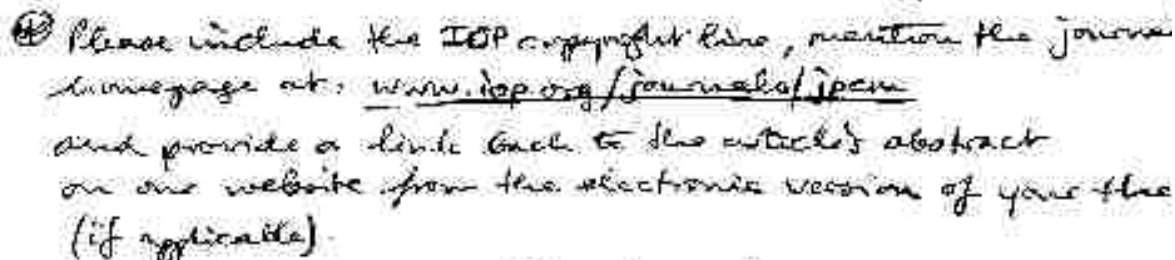 ⊛ Please include the IOP copyright line, mention the journa
homepage at: www.iop.org/journals/jpcm
and provide a link back to the article's abstract
on our website from the electronic version of your the
(if applicable).